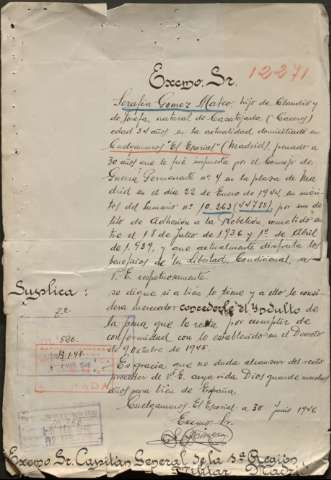 12371
Excmo. Sr.
Serafín Gomez Mateo, hijo de Claudio y
de Josefa, natural de Casatejada (Caceres)
edad 34 años en la actualidad domiciliado en
Cuelgamuros "El Escorial" (Madrid), penado a
30 años que le fué impuesta por el Consejo de
Guerra Permanente nº 4 en la plaza de Ma-
drid en el dia 22 de Enero de 1944, en méri-
tos del sumario nº 10.263 (44755), por un de-
lito de Adhesión a la Rebelión cometido en-
tre el 18 de Julio de 1936 y 1º de Abril
de 1.939, y que actualmente disfruta los
beneficios de la Libertad Condicional, a
V.E. respetuosamente
Suplica:
se digne si a bien lo tiene y a ello lo consi-
dera merecedor concederle el Yndulto de
la pena que le resta por cumplir de
conformidad con lo establecido en el Decreto
de 9 Octubre de 1945.
Es gracia que no duda alcanzar del recto
proceder de V.E. cuya vida Dios guarde muchos
años para bien de España.
Cuelgamuros El Escorial a 30 Junio 1946
Excmo. Sr.
Excmo Sr. Capitán General de la 1ª Región
Militar Madrid